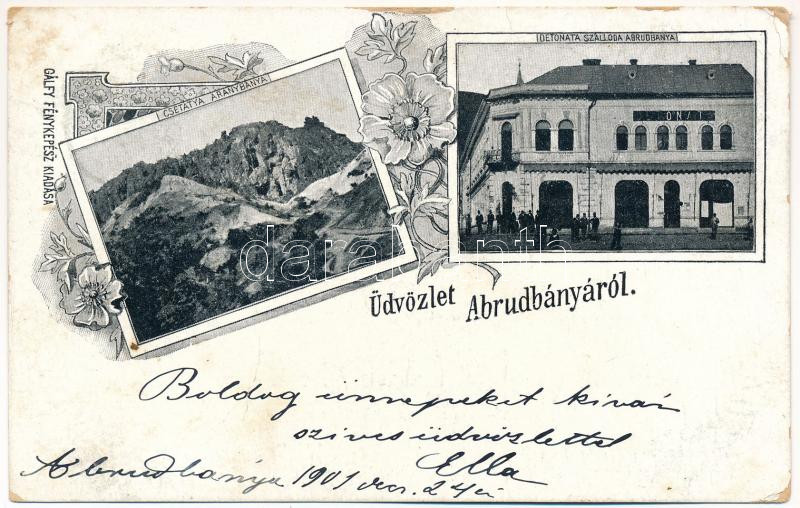 DETONATA SZÁLLODA ABRUDBÁNYA
CSETATYA ARANYBÁNYA
GÁLFY FÉNYKÉPÉSZ KIADÁSA
darabanth
Üdvözlet Abrudbányáról.
Boldog ünnepeket kíván
szives üdvözlettel
Ella
Abrudbánya 1901 dec. 24én